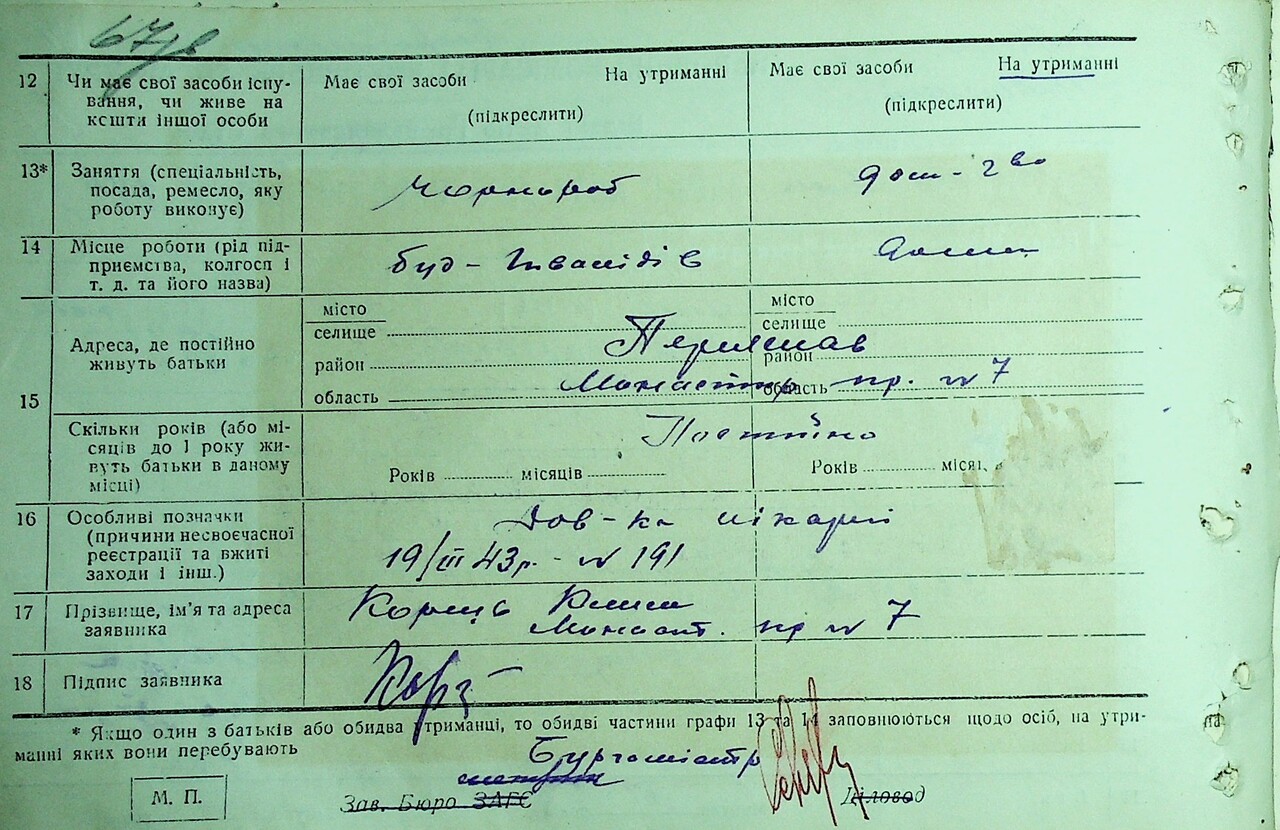 67/в
12 Чи має свої засоби існу- Має свої засоби На утриманні Має свої засоби На утриманні
вання, чи живе на (підкреслити) (підкреслити)
кошти іншої особи
13* Заняття (спеціальність, Чорнороб дом-г во
посада, ремесло, яку
роботу виконує)
14 Місце роботи (рід під- буд-Інвалідів дома
приємства, колгосп і
т. д. та його назва)
15 Адреса, де постійно місто місто
живуть батьки селище селище
Переяслав
район район
Монастир пр. № 7
область область
Скільки років (або мі- Постійно
сяців до 1 року жи-
вуть батьки в даному Років місяців Років місяц
місці)
16 Особливі позначки Дов-ка лікарні
(причини несвоєчасної 19/III 43р. - № 191
реєстрації та вжиті
заходи і інш.)
17 Прізвище, ім'я та адреса
заявника Монаст. пр № 7
18 Підпис заявника
* Якщо один з батьків або обидва утриманці, то обидві частини графи 13 та 14 заповнюються щодо осіб, на утри-
манні яких вони перебувають
Бургомістр
М. П. Зав. Бюро ЗАГС Діловод